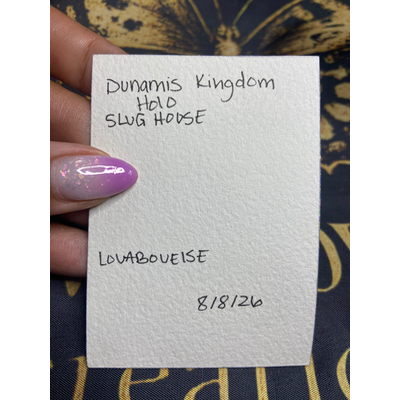 Dunamis Kingdom
Holo
SLUG HOUSE
LOVABOVEISE
8/8/26